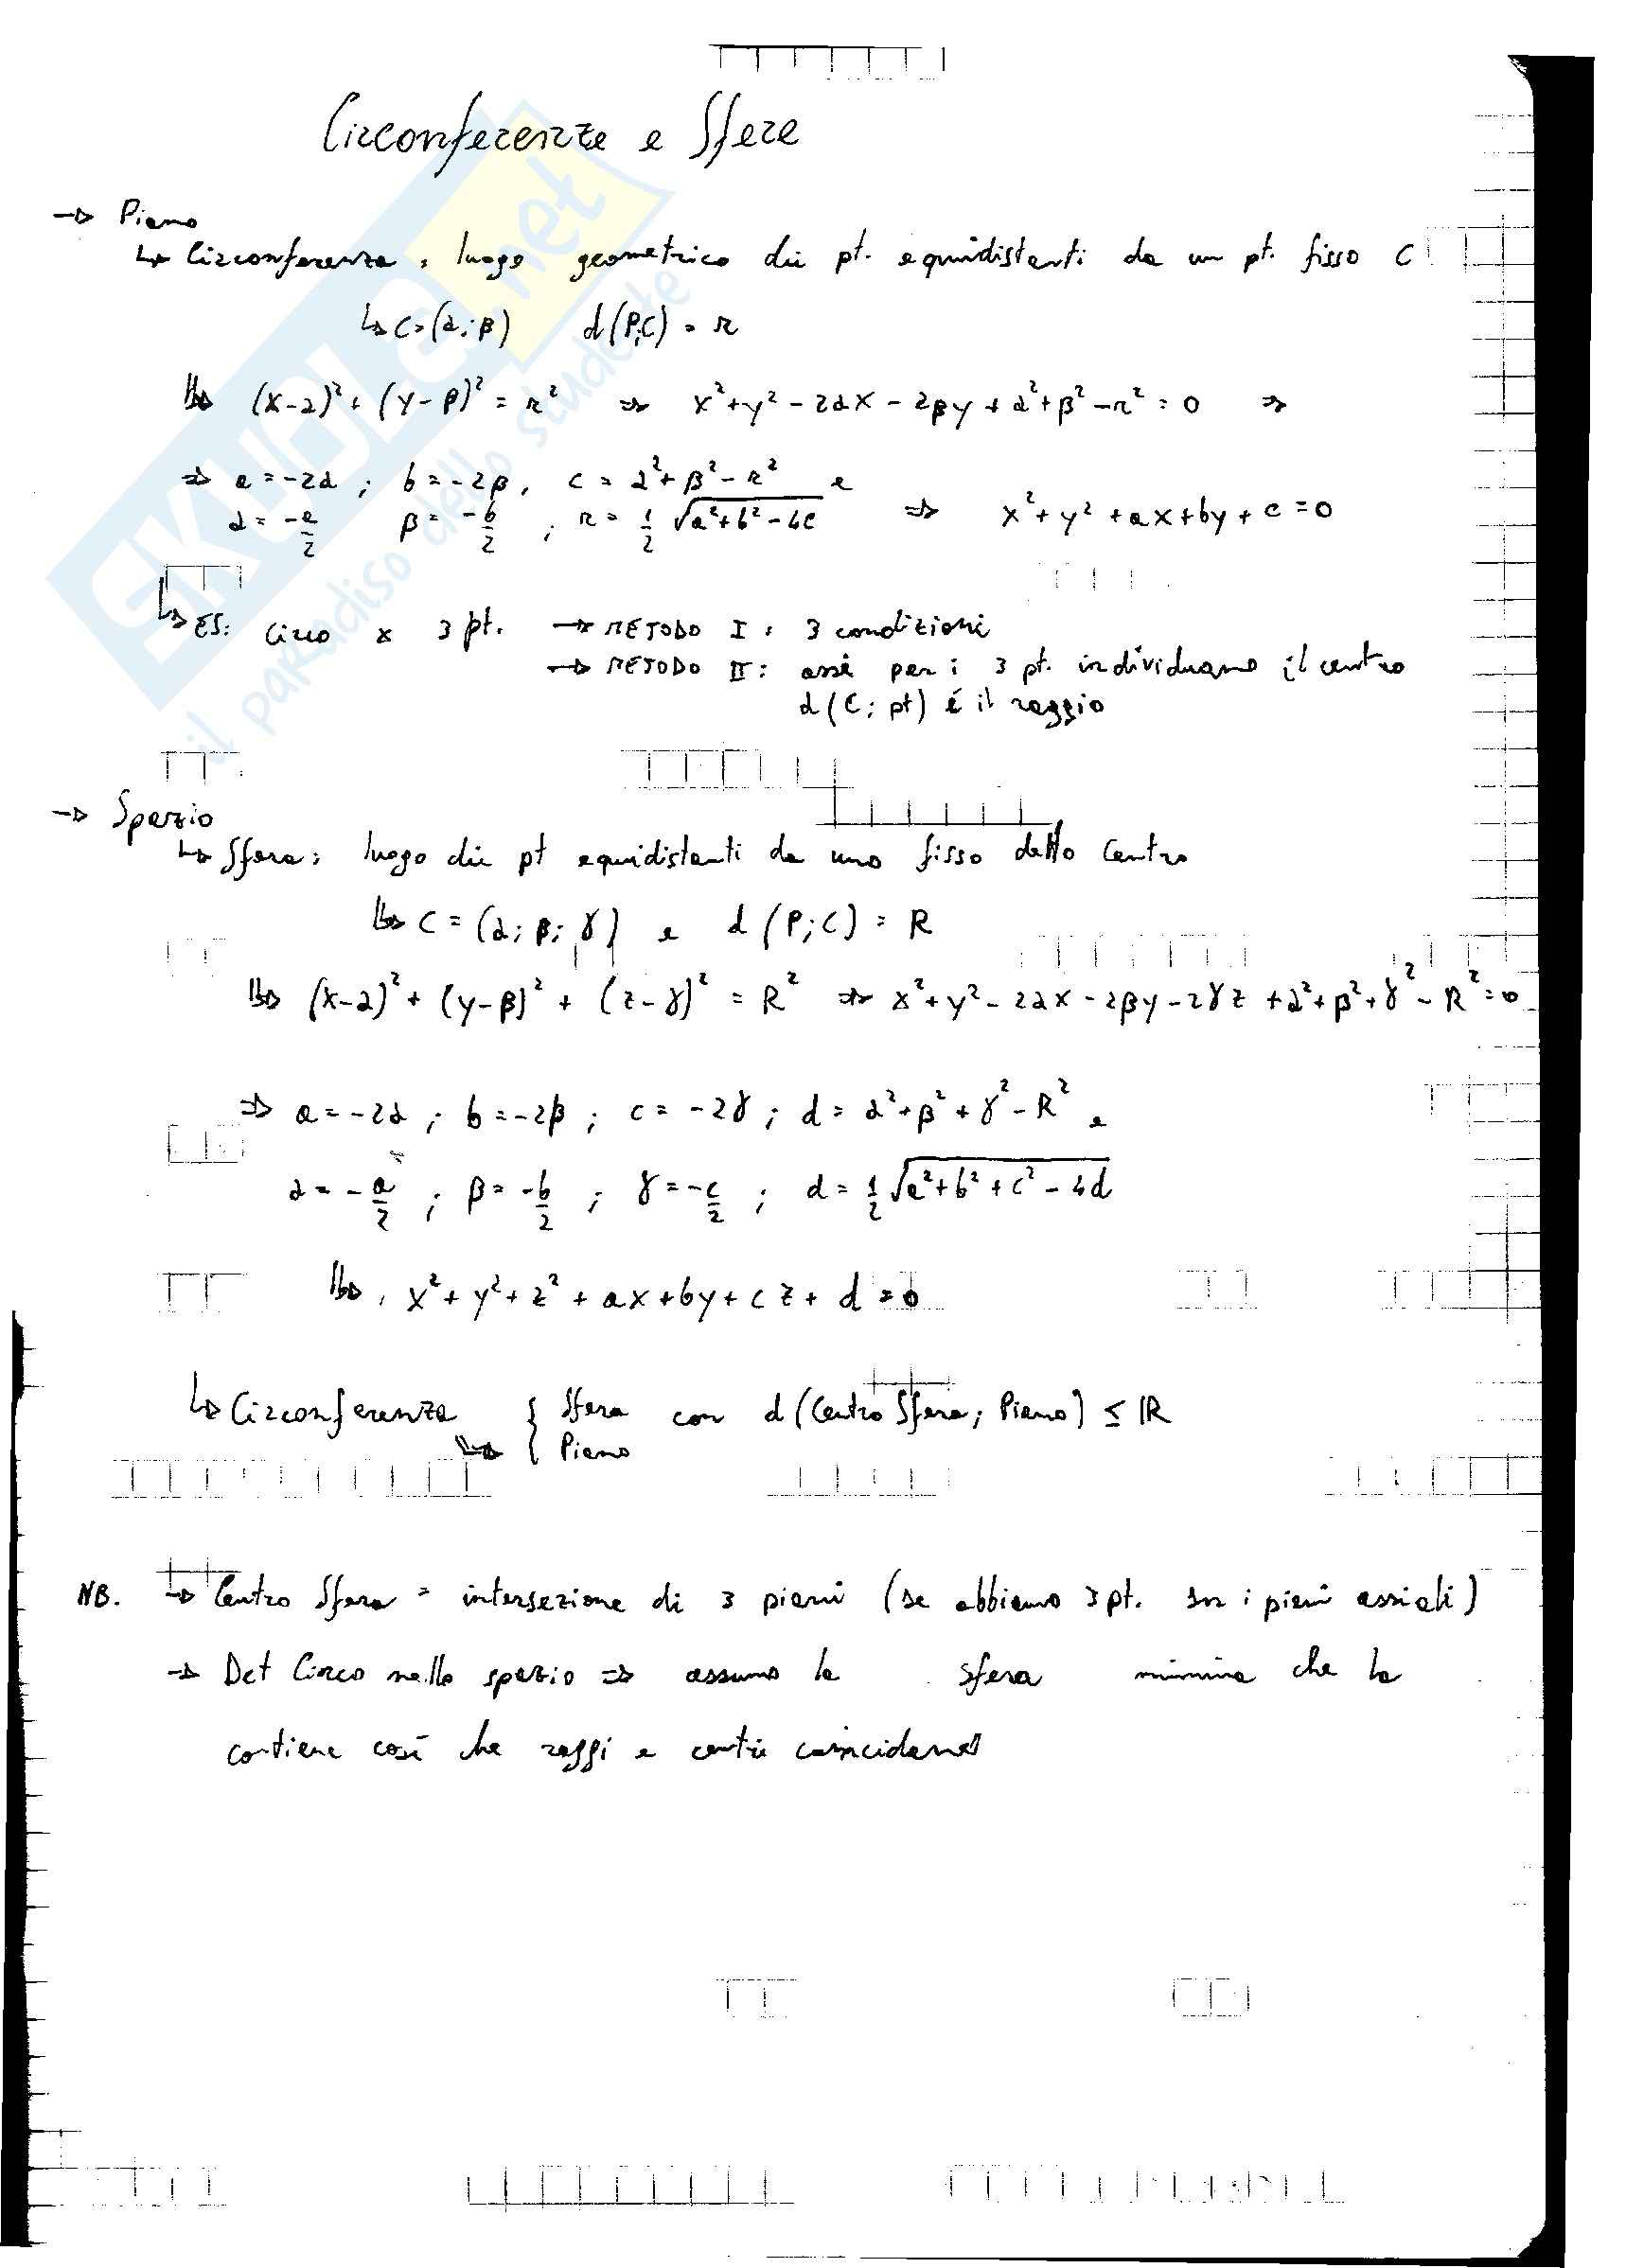 Circonferenze e Sfere
→ Piano
↳ Circonferenza: luogo geometrico dei pt. equidistanti da un pt. fisso C
↳ C=(α;β) d(P;C) = r
↳ (x-α)² + (y-β)² = r² ⇒ x²+y²-2αx-2βy+α²+β²-r²=0 ⇒
⇒ a=-2α ; b=-2β, c=α²+β²-r² e
α=-a/2 β=-b/2 ; r=1/2 √(a²+b²-4c) ⇒ x²+y²+ax+by+c=0
↳ ES: Circo x 3 pt. → METODO I: 3 condizioni
→ METODO II: assi per i 3 pt. individuano il centro
d(C;pt) é il raggio
→ Spazio
↳ Sfera: luogo dei pt equidistanti da uno fisso detto Centro
↳ C=(α;β;γ) e d(P;C)=R
↳ (x-α)²+(y-β)²+(z-γ)²=R² ⇒ x²+y²-2αx-2βy-2γz+α²+β²+γ²-R²=0
⇒ a=-2α ; b=-2β ; c=-2γ ; d=α²+β²+γ²-R² e
α=-a/2 ; β=-b/2 ; γ=-c/2 ; d=1/2 √(a²+b²+c²-4d)
↳ x²+y²+z²+ax+by+cz+d=0
↳ Circonferenza { Sfera con d(Centro Sfera; Piano) ≤ R
↳ { Piano
NB. → Centro Sfera = intersezione di 3 piani (se abbiamo 3 pt. son i piani assiali)
→ Det Circo nello spazio ⇒ assumo la sfera minima che la
contiene così che raggi e centri coincidano
SKUOLA.net
il paradiso dello studente